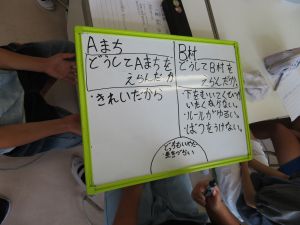 Aまち
どうしてAまちを
えらんだか
・きれいだから
B村
どうしてB村を
えらんだか。
・下をむいてくびが
いたくならない。
・ルールがゆるい。
・ばつをうけない。
どちらもいいけど